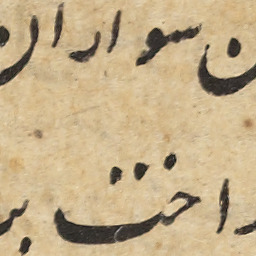 ن سواران
داخت بر